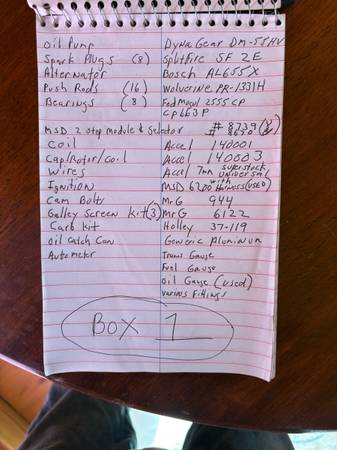 Oil Pump DynaGear DM-55HV
Spark Plugs (8) Splitfire SF 2E
Alternator Bosch AL655X
Push Rods (16) Wolverine PR-1331H
Bearings (8) Fed Mogul 2555 CP
CP 663P
MSD 2 Step module & Selector # 8739
# 8670
Coil Accel 140001
Cap/Rotor/Coil Accel 140003
Wires Accel 7mm superstock universal
Ignition MSD 6200 with Harness (used)
Cam Bolts Mr G 944
Galley Screen Kit (3) Mr G 6122
Carb Kit Holley 37-119
Oil Catch Can Generic Aluminum
Autometer Trans Gauge
Fuel Gauge
Oil Gauge (used)
Various Fittings
Box 1